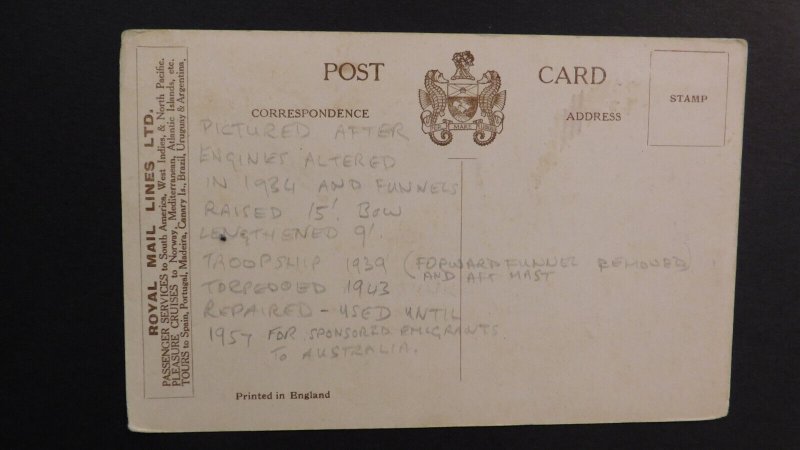 ROYAL MAIL LINES LTD.
PASSENGER SERVICES to South America, West Indies, & North Pacific.
PLEASURE CRUISES to Norway, Mediterranean, Atlantic Islands, etc.
TOURS to Spain, Portugal, Madeira, Canary Is., Brazil, Uruguay & Argentina.
POST CARD
CORRESPONDENCE
ADDRESS
STAMP
PICTURED AFTER
ENGINES ALTERED
IN 1934 AND FUNNELS
RAISED 15'. BOW
LENGTHENED 9'.
TROOPSHIP 1939 (FORWARD FUNNEL REMOVED)
AND AFT MAST
TORPEDOED 1943
REPAIRED - USED UNTIL
1957 FOR SPONSORED EMIGRANTS
TO AUSTRALIA.
Printed in England